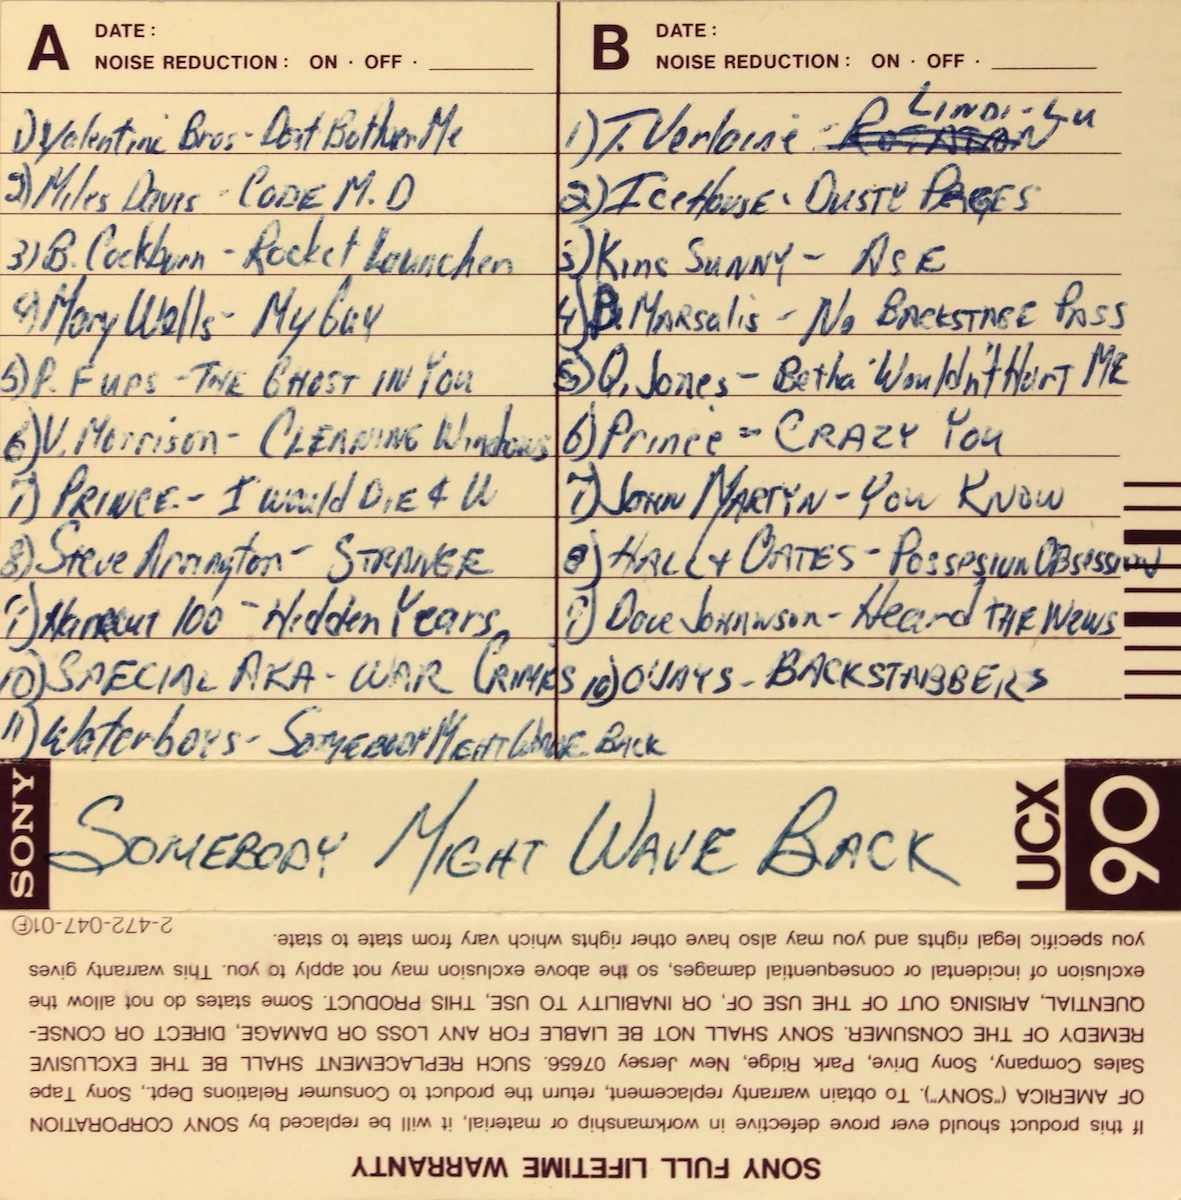 A DATE :
NOISE REDUCTION : ON · OFF ·
1) Valentine Bros - Don't Bother Me
2) Miles Davis - CODE M.D
3) B. Cockburn - Rocket Launcher
4) Mary Wells - My Guy
5) P. Furs - THE GHOST IN YOU
6) V. Morrison - CLEANING Windows
7) PRINCE - I would DIE 4 U
8) Steve Arrington - STRANGE
9) Haircut 100 - Hidden Years
10) SPECIAL AKA - WAR CRIMES
11) Waterboys - SOMEBODY MIGHT WAVE BACK
B DATE :
NOISE REDUCTION : ON · OFF ·
1) T. Verlaine - ROTATION LINDI-LU
2) IceHouse - DUSTY PAGES
3) King SUNNY - ADE
4) B. MARSALIS - No BACKSTAGE PASS
5) Q. Jones - Betcha Wouldn't Hurt ME
6) Prince - CRAZY YOU
7) JOHN MARTYN - YOU KNOW
8) HALL & OATES - POSSESIUN OBSESSION
9) Dave Johnwson - Heard THE News
10) O'JAYS - BACKSTABBERS
SONY SOMEBODY MIGHT WAVE BACK UCX 90
SONY FULL LIFETIME WARRANTY
If this product should ever prove defective in workmanship or material, it will be replaced by SONY CORPORATION
OF AMERICA ("SONY"). To obtain warranty replacement, return the product to Consumer Relations Dept., Sony Tape
Sales Company, Sony Drive, Park Ridge, New Jersey 07656. SUCH REPLACEMENT SHALL BE THE EXCLUSIVE
REMEDY OF THE CONSUMER. SONY SHALL NOT BE LIABLE FOR ANY LOSS OR DAMAGE, DIRECT OR CONSE-
QUENTIAL, ARISING OUT OF THE USE OF, OR INABILITY TO USE, THIS PRODUCT. Some states do not allow the
exclusion of incidental or consequential damages, so the above exclusion may not apply to you. This warranty gives
you specific legal rights and you may also have other rights which vary from state to state.
2-472-047-01Ⓔ